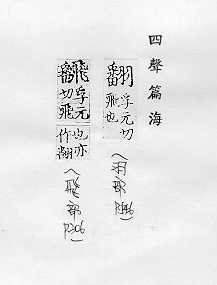 四聲篇海
翻孚元切飛也
(羽部
飜孚元切飛也亦作翻
(飛部P206)